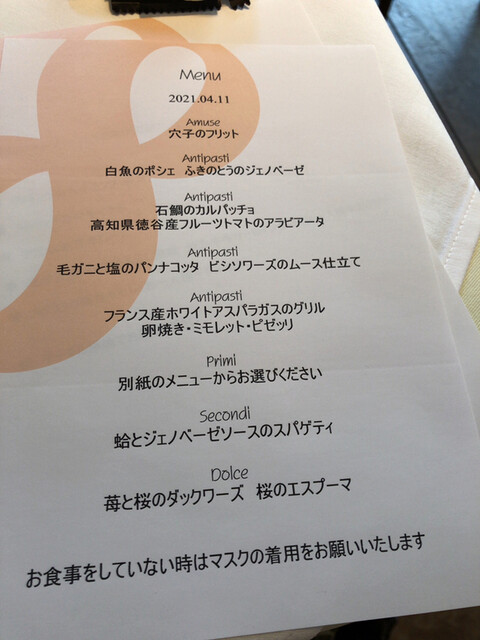 Menu
2021.04.11
Amuse
穴子のフリット
Antipasti
白魚のポシェ ふきのとうのジェノベーゼ
Antipasti
石鯛のカルパッチョ
高知県徳谷産フルーツトマトのアラビアータ
Antipasti
毛ガニと塩のパンナコッタ ビシソワーズのムース仕立て
Antipasti
フランス産ホワイトアスパラガスのグリル
卵焼き・ミモレット・ピゼッリ
Primi
別紙のメニューからお選びください
Secondi
蛤とジェノベーゼソースのスパゲティ
Dolce
苺と桜のダックワーズ 桜のエスプーマ
お食事をしていない時はマスクの着用をお願いいたします